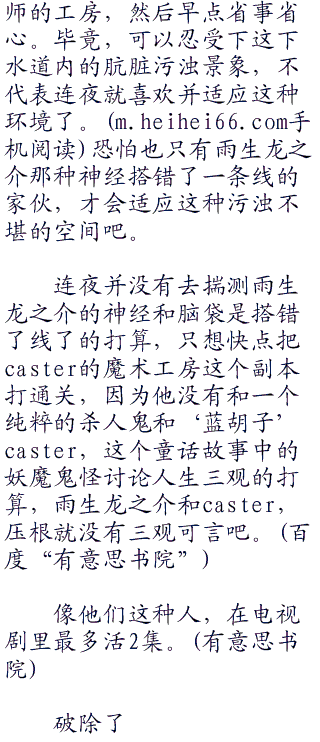 师的工房，然后早点省事省
心。毕竟，可以忍受下这下
水道内的肮脏污浊景象，不
代表连夜就喜欢并适应这种
环境了。(m.heihei66.com手
机阅读)恐怕也只有雨生龙之
介那种神经搭错了一条线的
家伙，才会适应这种污浊不
堪的空间吧。
连夜并没有去揣测雨生
龙之介的神经和脑袋是搭错
了线了的打算，只想快点把
caster的魔术工房这个副本
打通关，因为他没有和一个
纯粹的杀人鬼和‘蓝胡子’
caster，这个童话故事中的
妖魔鬼怪讨论人生三观的打
算，雨生龙之介和caster，
压根就没有三观可言吧。(百
度“有意思书院”)
像他们这种人，在电视
剧里最多活2集。(有意思书
院)
破除了